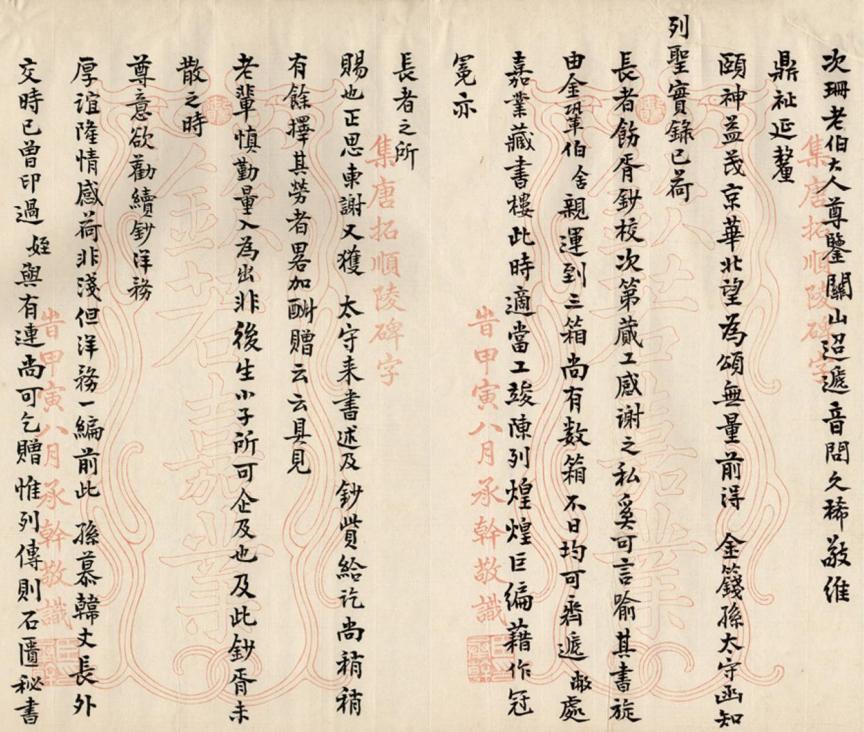 次珊老伯大人尊鑒關山迢遞音問久稀敬維
鼎祉延釐
頤神益茂京華北望為頌無量前得 金籛孫太守函知
列聖實錄已荷
長者飭胥鈔校次第蕆工感謝之私奚可言喻其書旋
由金鞏伯舍親運到三箱尚有数箱不日均可齊遞敝處
嘉業藏書樓此時適當工竣陳列煌煌巨編藉作冠
冕亦
集唐拓順陵碑字
欽若嘉業
旹甲寅八月承幹敬識
長者之所
賜也正思柬謝又獲 太守来書述及鈔貲給訖尚稍稍
有餘擇其勞者畧加酬贈云云具見
老輩慎勤量入為出非後生小子所可企及也及此鈔胥未
散之時
尊意欲勸續鈔洋務
厚誼隆情感荷非淺但洋務一編前此 孫慕韓丈長外
交時已曾印過 姪與有連尚可乞贈惟列傳則石匱秘書
集唐拓順陵碑字
欽若嘉業
旹甲寅八月承幹敬識